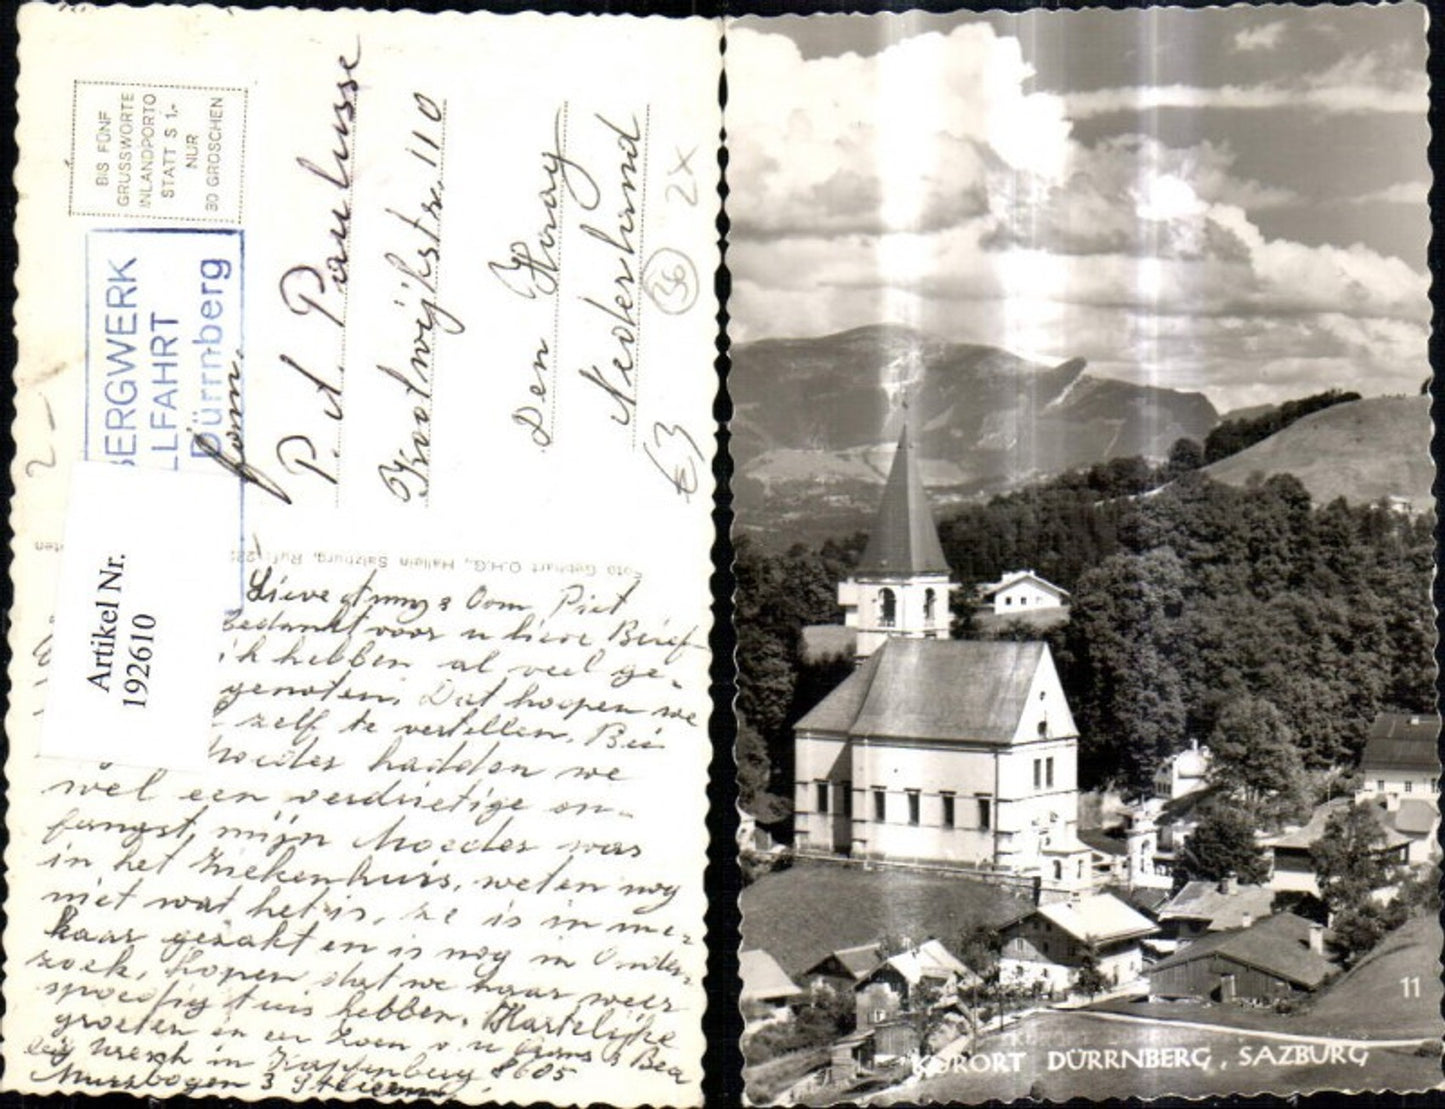 BIS FÜNF
GRUSSWORTE
INLANDPORTO
STATT S 1,-
NUR
30 GROSCHEN
BERGWERK
LLFAHRT
Dürrnberg
fam.
P. A. Paulusse
Kootwijkstr. 110
Den Haag
Nederland
2x
36
€3
2-
Foto Gebhart O.H.G., Hallein Salzburg, Ruf
Artikel Nr.
192610
Lieve & Oom Piet
Bedankt voor u lieve Brief
ik hebben al veel ge-
genoten. Dat hoopen we
zelf te vertellen. Bij
Moeder hadden we
wel een verdrietige on-
fangst, mijn Moeder was
in het Ziekenhuis, weten nog
niet wat het is, ze is in me-
kaar gezakt en is nog in Onder-
zoek, hopen dat we haar weer
spoedig tuis hebben. Hartelijke
groeten en een Zoen v. u Hans & Bea
in Kapfenberg 8605
Murzbogen 3
KURORT DÜRRNBERG, SAZBURG
11